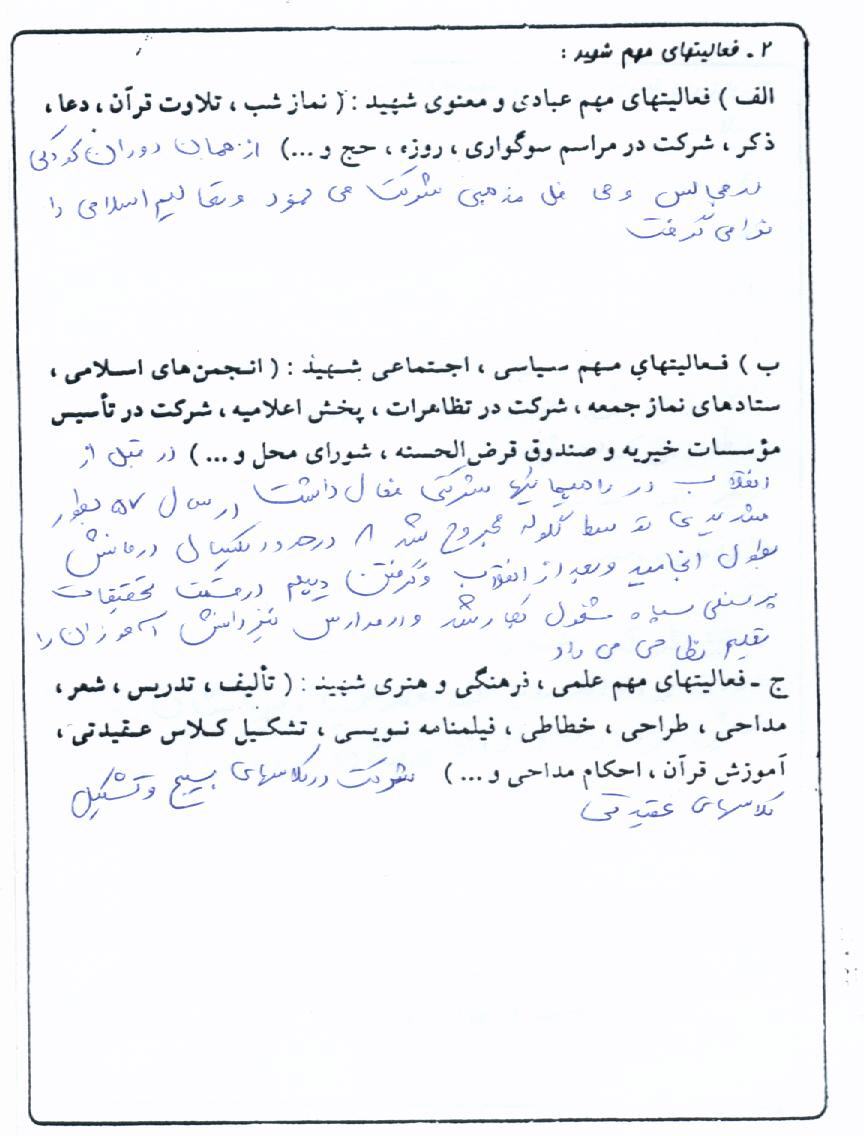 ۲ ـ فعالیتهای مهم شهید :
الف ) فعالیتهای مهم عبادی و معنوی شهید : ( نماز شب ، تلاوت قرآن ، دعا ،
ذکر ، شرکت در مراسم سوگواری ، روزه ، حج و ...) از همان دوران کودکی
در مجالس و محافل مذهبی شرکت می نمود و تعالیم اسلامی را
فرا می گرفت
ب ) فعالیتهای مهم سیاسی ، اجتماعی شهید : ( انجمن‌های اسلامی ،
ستادهای نماز جمعه ، شرکت در تظاهرات ، پخش اعلامیه ، شرکت در تأسیس
مؤسسات خیریه و صندوق قرض‌الحسنه ، شورای محل و ... ) در قبل از
انقلاب در راهپیمائیها شرکتی فعال داشت در سال ۵۷ بطور
شدیدی توسط گلوله مجروح شد درحدود یکسال درمانش
بطول انجامید وبعد از انقلاب وگرفتن دیپلم درقسمت تحقیقات
پرسنلی سپاه مشغول بکار شد ودر مدارس نیز دانش آموزان را
تعلیم نظامی می داد
ج ـ فعالیتهای مهم علمی ، فرهنگی و هنری شهید : ( تألیف ، تدریس ، شعر ،
مداحی ، طراحی ، خطاطی ، فیلمنامه نویسی ، تشکیل کلاس عقیدتی ،
آموزش قرآن ، احکام مداحی و ... ) شرکت در کلاسهای بسیج وتشکیل
کلاسهای عقیدتی